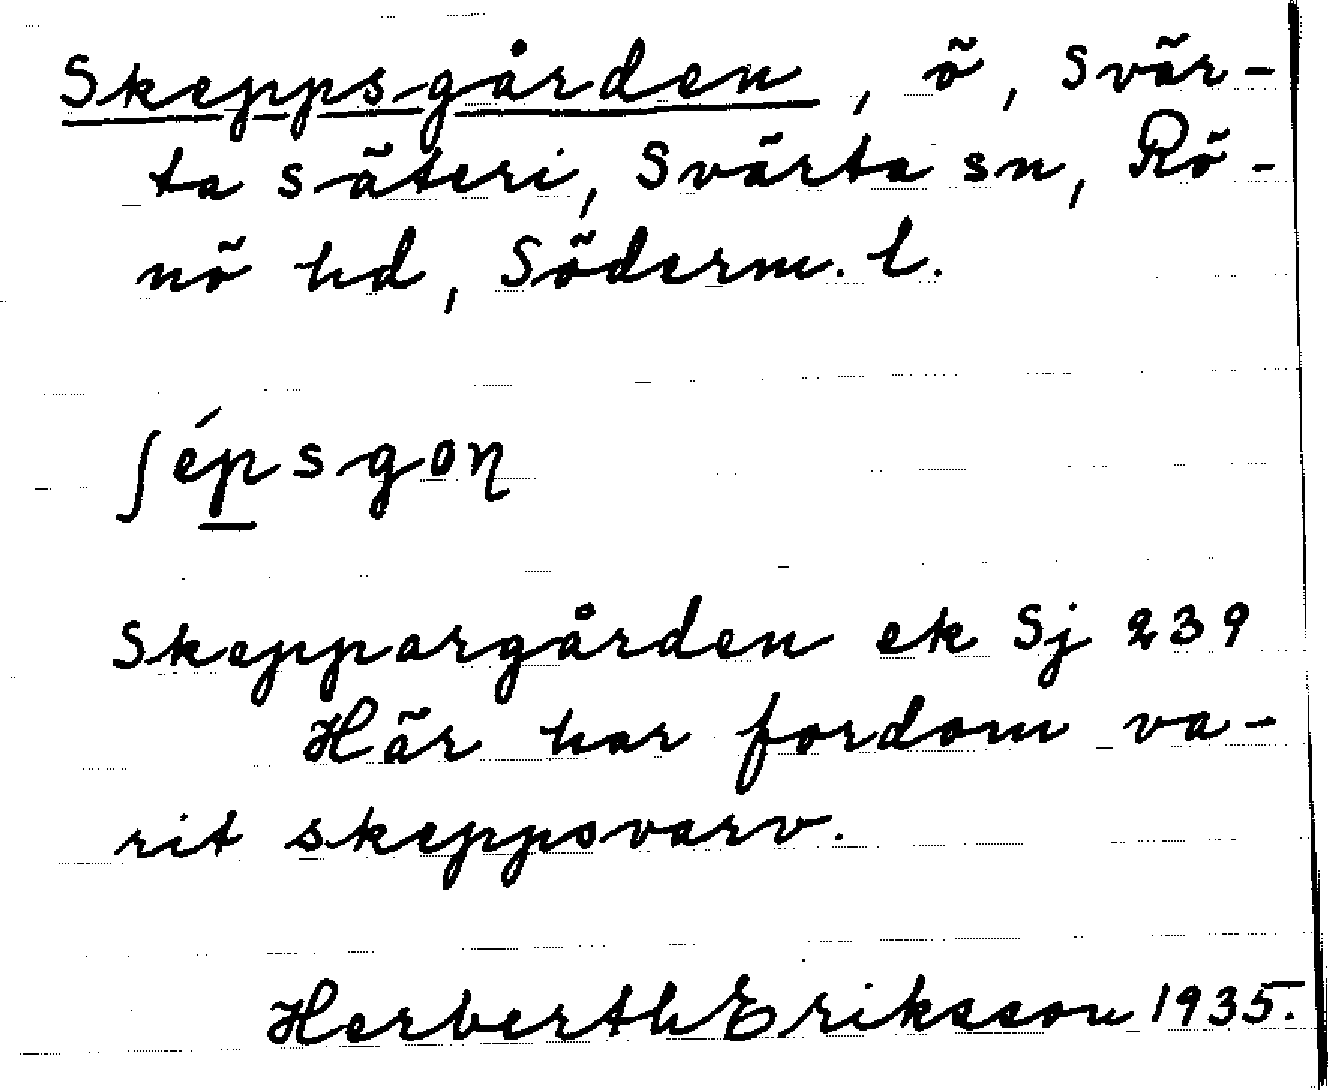 Skeppsgården, ö, Svär-
ta säteri, Svärta sn, Rö-
nö hd, Söderm. l.
ʃép̲sgoɳ
Skeppargården ek Sj 239
Här har fordom va-
rit skeppsvarv.
Herberth Eriksson 1935.